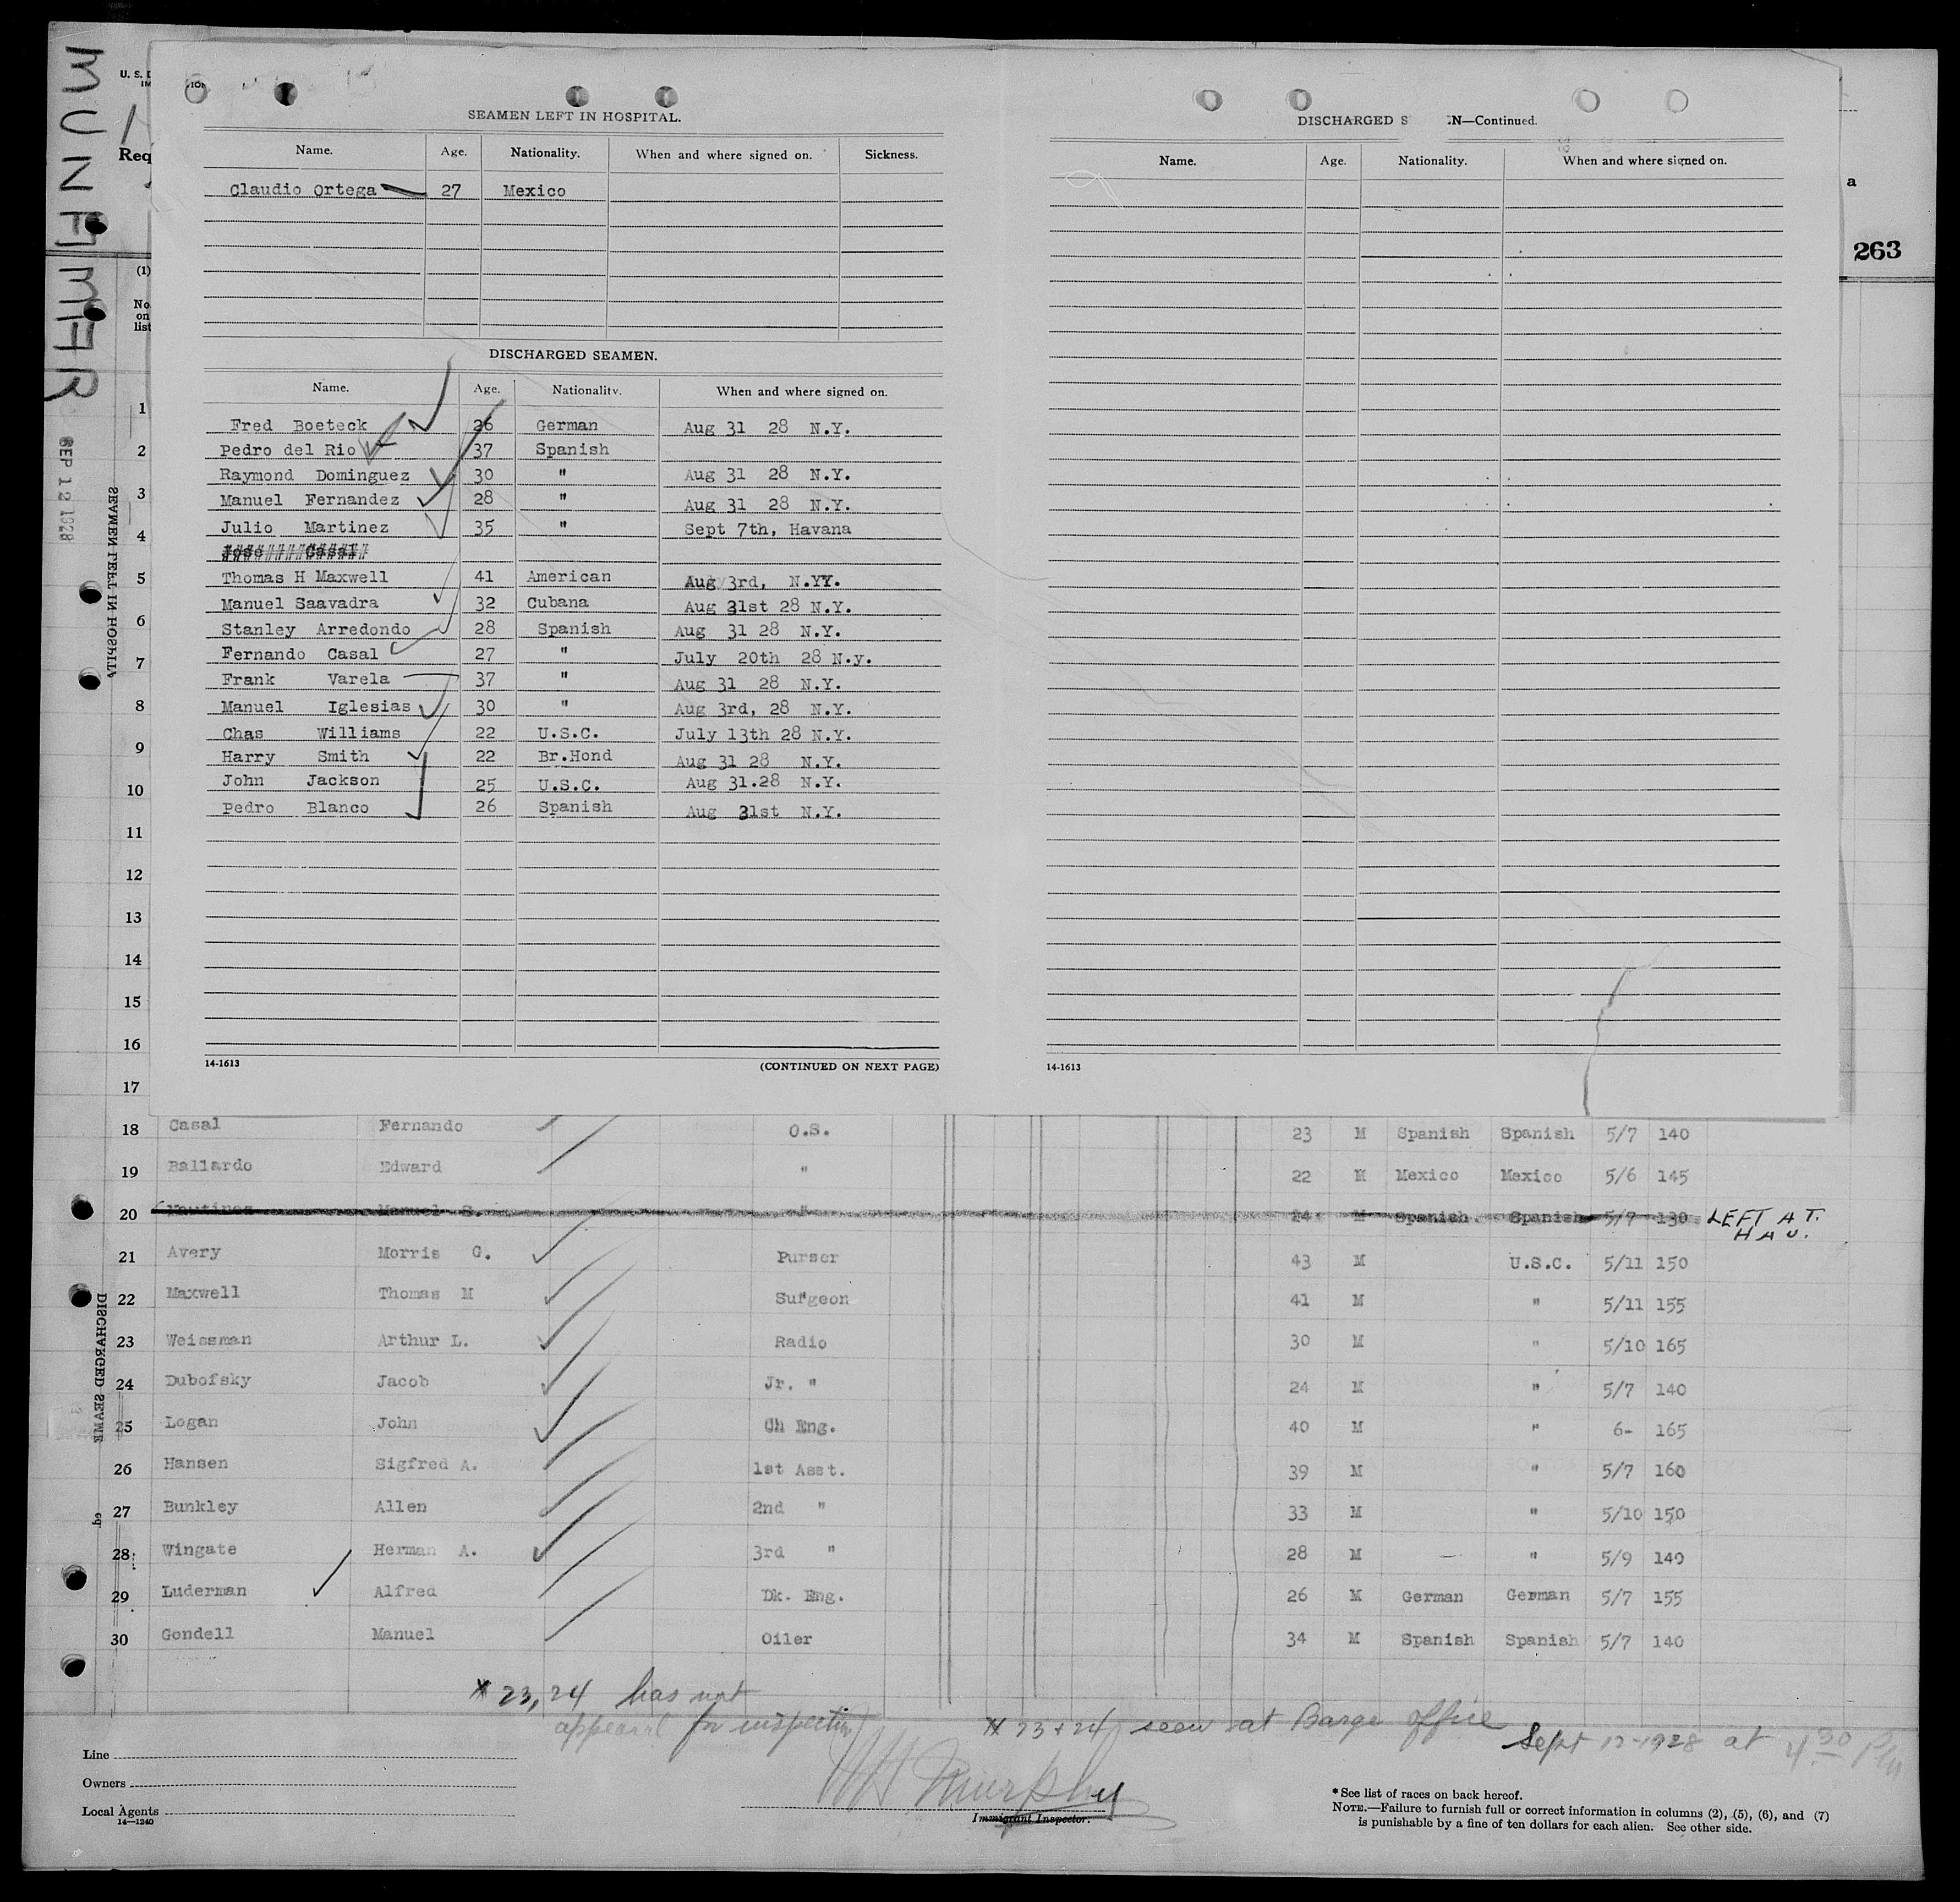 MUNAMAR
U. S. D
IM
Req
(1)
No.
on
list
SEP 12 1928
SEAMEN LEFT IN HOSPITA
DISCHARGED SEAME
a
263
SEAMEN LEFT IN HOSPITAL.
Name. Age. Nationality. When and where signed on. Sickness.
Claudio Ortega 27 Mexico
DISCHARGED SEAMEN.
Name. Age. Nationality. When and where signed on.
Fred Boeteck 26 German Aug 31 28 N.Y.
Pedro del Rio 37 Spanish
Raymond Dominguez 30 " Aug 31 28 N.Y.
Manuel Fernandez 28 " Aug 31 28 N.Y.
Julio Martinez 35 " Sept 7th, Havana
Jose Casal
Thomas H Maxwell 41 American Aug 3rd, N.YY.
Manuel Saavadra 32 Cubana Aug 31st 28 N.Y.
Stanley Arredondo 28 Spanish Aug 31 28 N.Y.
Fernando Casal 27 " July 20th 28 N.y.
Frank Varela 37 " Aug 31 28 N.Y.
Manuel Iglesias 30 " Aug 3rd, 28 N.Y.
Chas Williams 22 U.S.C. July 13th 28 N.Y.
Harry Smith 22 Br.Hond Aug 31 28 N.Y.
John Jackson 25 U.S.C. Aug 31.28 N.Y.
Pedro Blanco 26 Spanish Aug 31st N.Y.
14-1613 (CONTINUED ON NEXT PAGE)
DISCHARGED S EN—Continued.
Name. Age. Nationality. When and where signed on.
14-1613
1
2
3
4
5
6
7
8
9
10
11
12
13
14
15
16
17
18 Casal Fernando O.S. 23 M Spanish Spanish 5/7 140
19 Ballardo Edward " 22 M Mexico Mexico 5/6 145
20 Manuel S. " 24 M Spanish Spanish 5/7 130 LEFT AT.
HAV.
21 Avery Morris G. Purser 43 M U.S.C. 5/11 150
22 Maxwell Thomas M Surgeon 41 M " 5/11 155
23 Weissman Arthur L. Radio 30 M " 5/10 165
24 Dubofsky Jacob Jr. " 24 M " 5/7 140
25 Logan John Ch Eng. 40 M " 6- 165
26 Hansen Sigfred A. 1st Asst. 39 M " 5/7 160
27 Bunkley Allen 2nd " 33 M " 5/10 150
28 Wingate Herman A. 3rd " 28 M — " 5/9 140
29 Luderman Alfred Dk. Eng. 26 M German German 5/7 155
30 Gondell Manuel Oiler 34 M Spanish Spanish 5/7 140
* 23, 24 has not
appeared for inspection
* 23 + 24 seen at Barge office
Sept 12-1928 at 4 30 Pm
Line
Owners
Local Agents
14—1240
Murphy
Immigrant Inspector.
* See list of races on back hereof.
NOTE.—Failure to furnish full or correct information in columns (2), (5), (6), and (7)
is punishable by a fine of ten dollars for each alien. See other side.